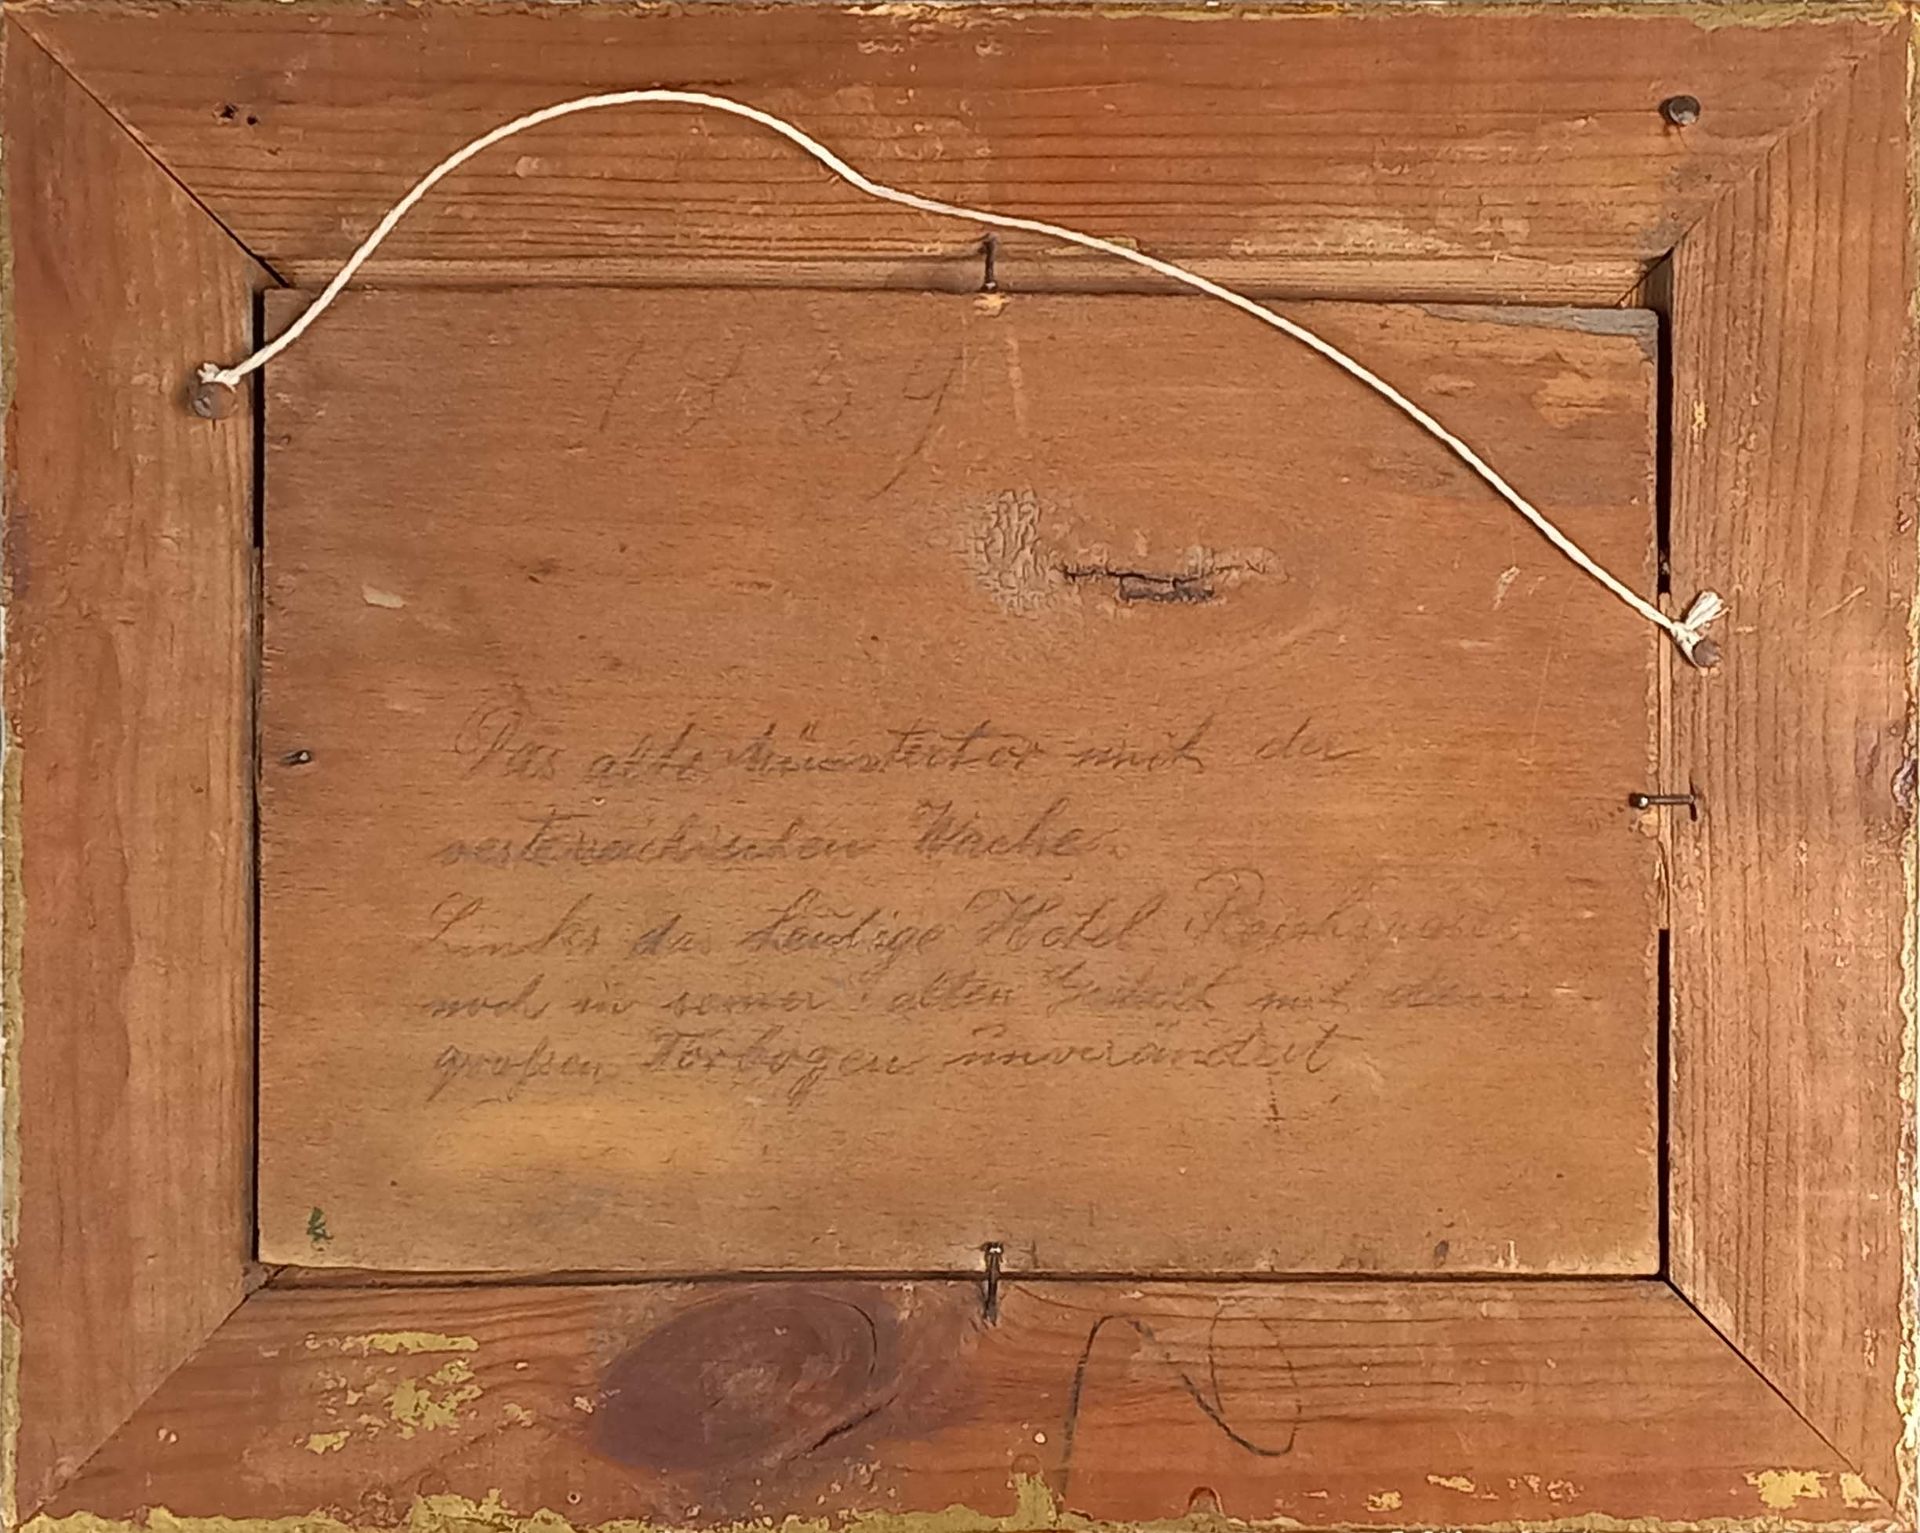 1839
Das alte Münstertor mit der
oesterreichischen Wache.
Links das heutige Hotel
noch in seiner alten Gestalt mit dem
großen Torbogen unverändert